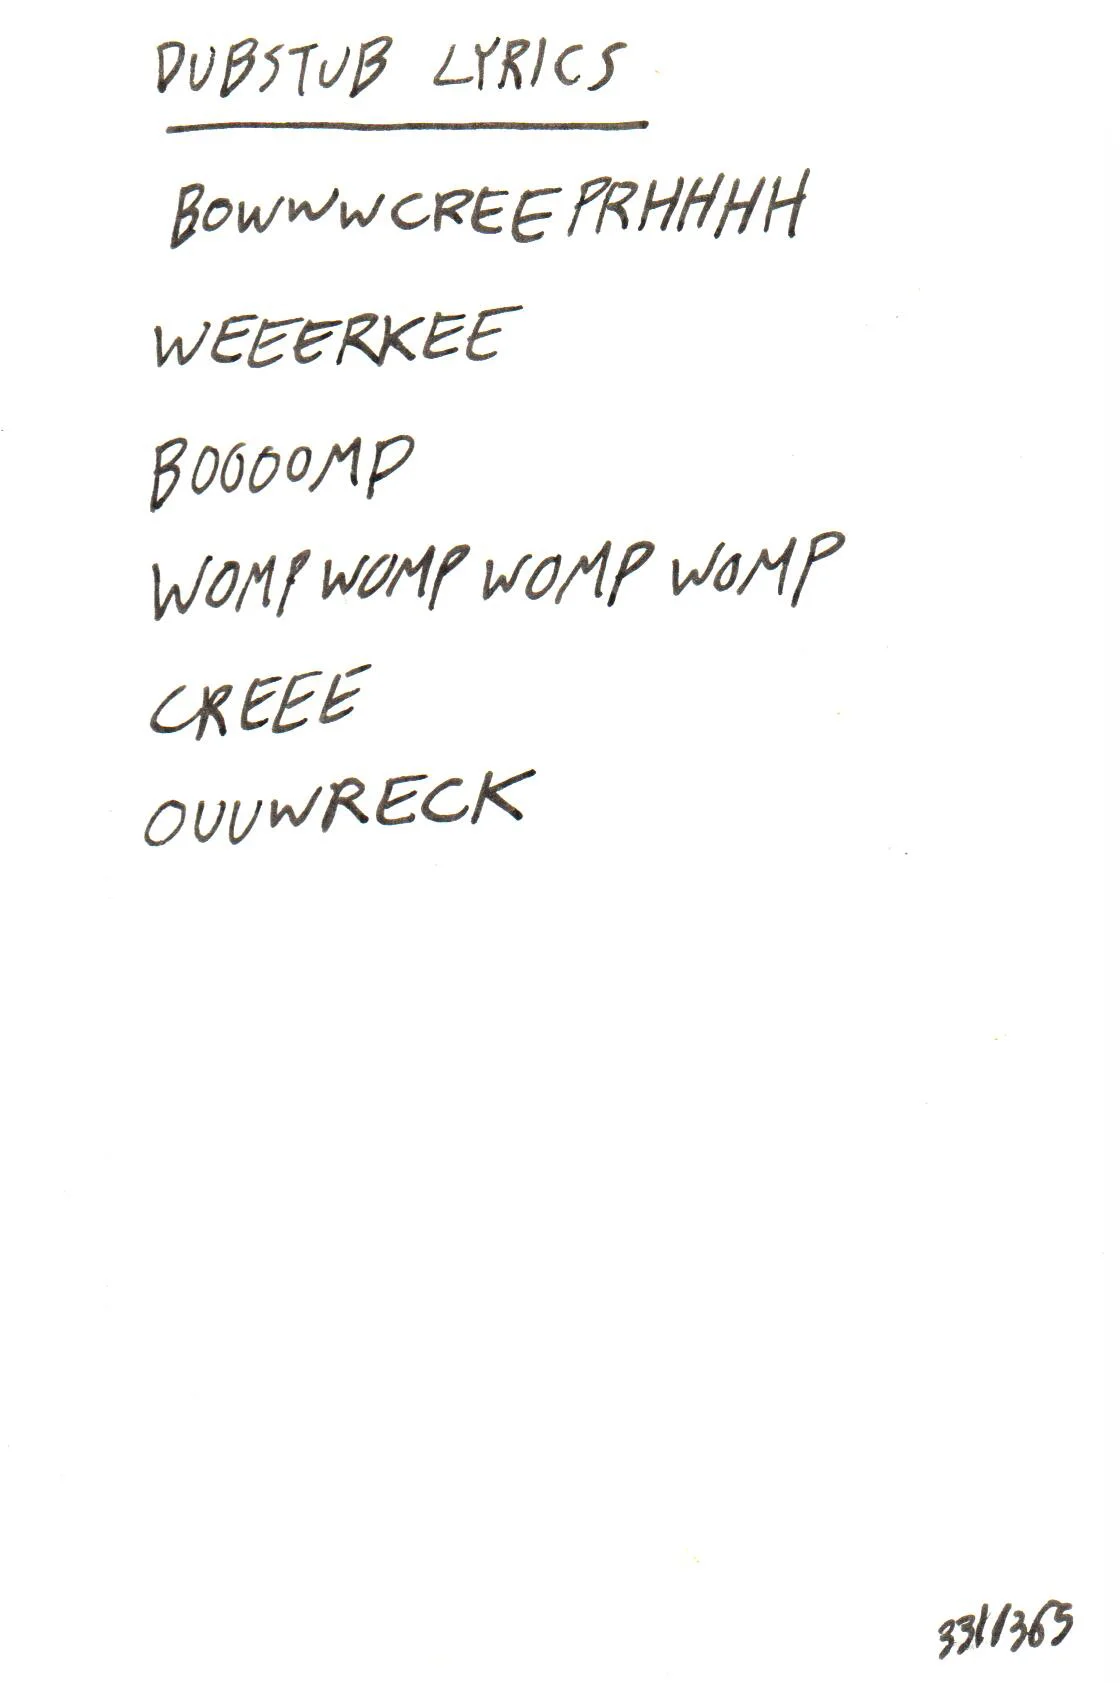 DUBSTUB LYRICS
BOWWWCREEPRHHHH
WEEERKEE
BOOOOMP
WOMP WOMP WOMP WOMP
CREEE
OUUWRECK
331/365